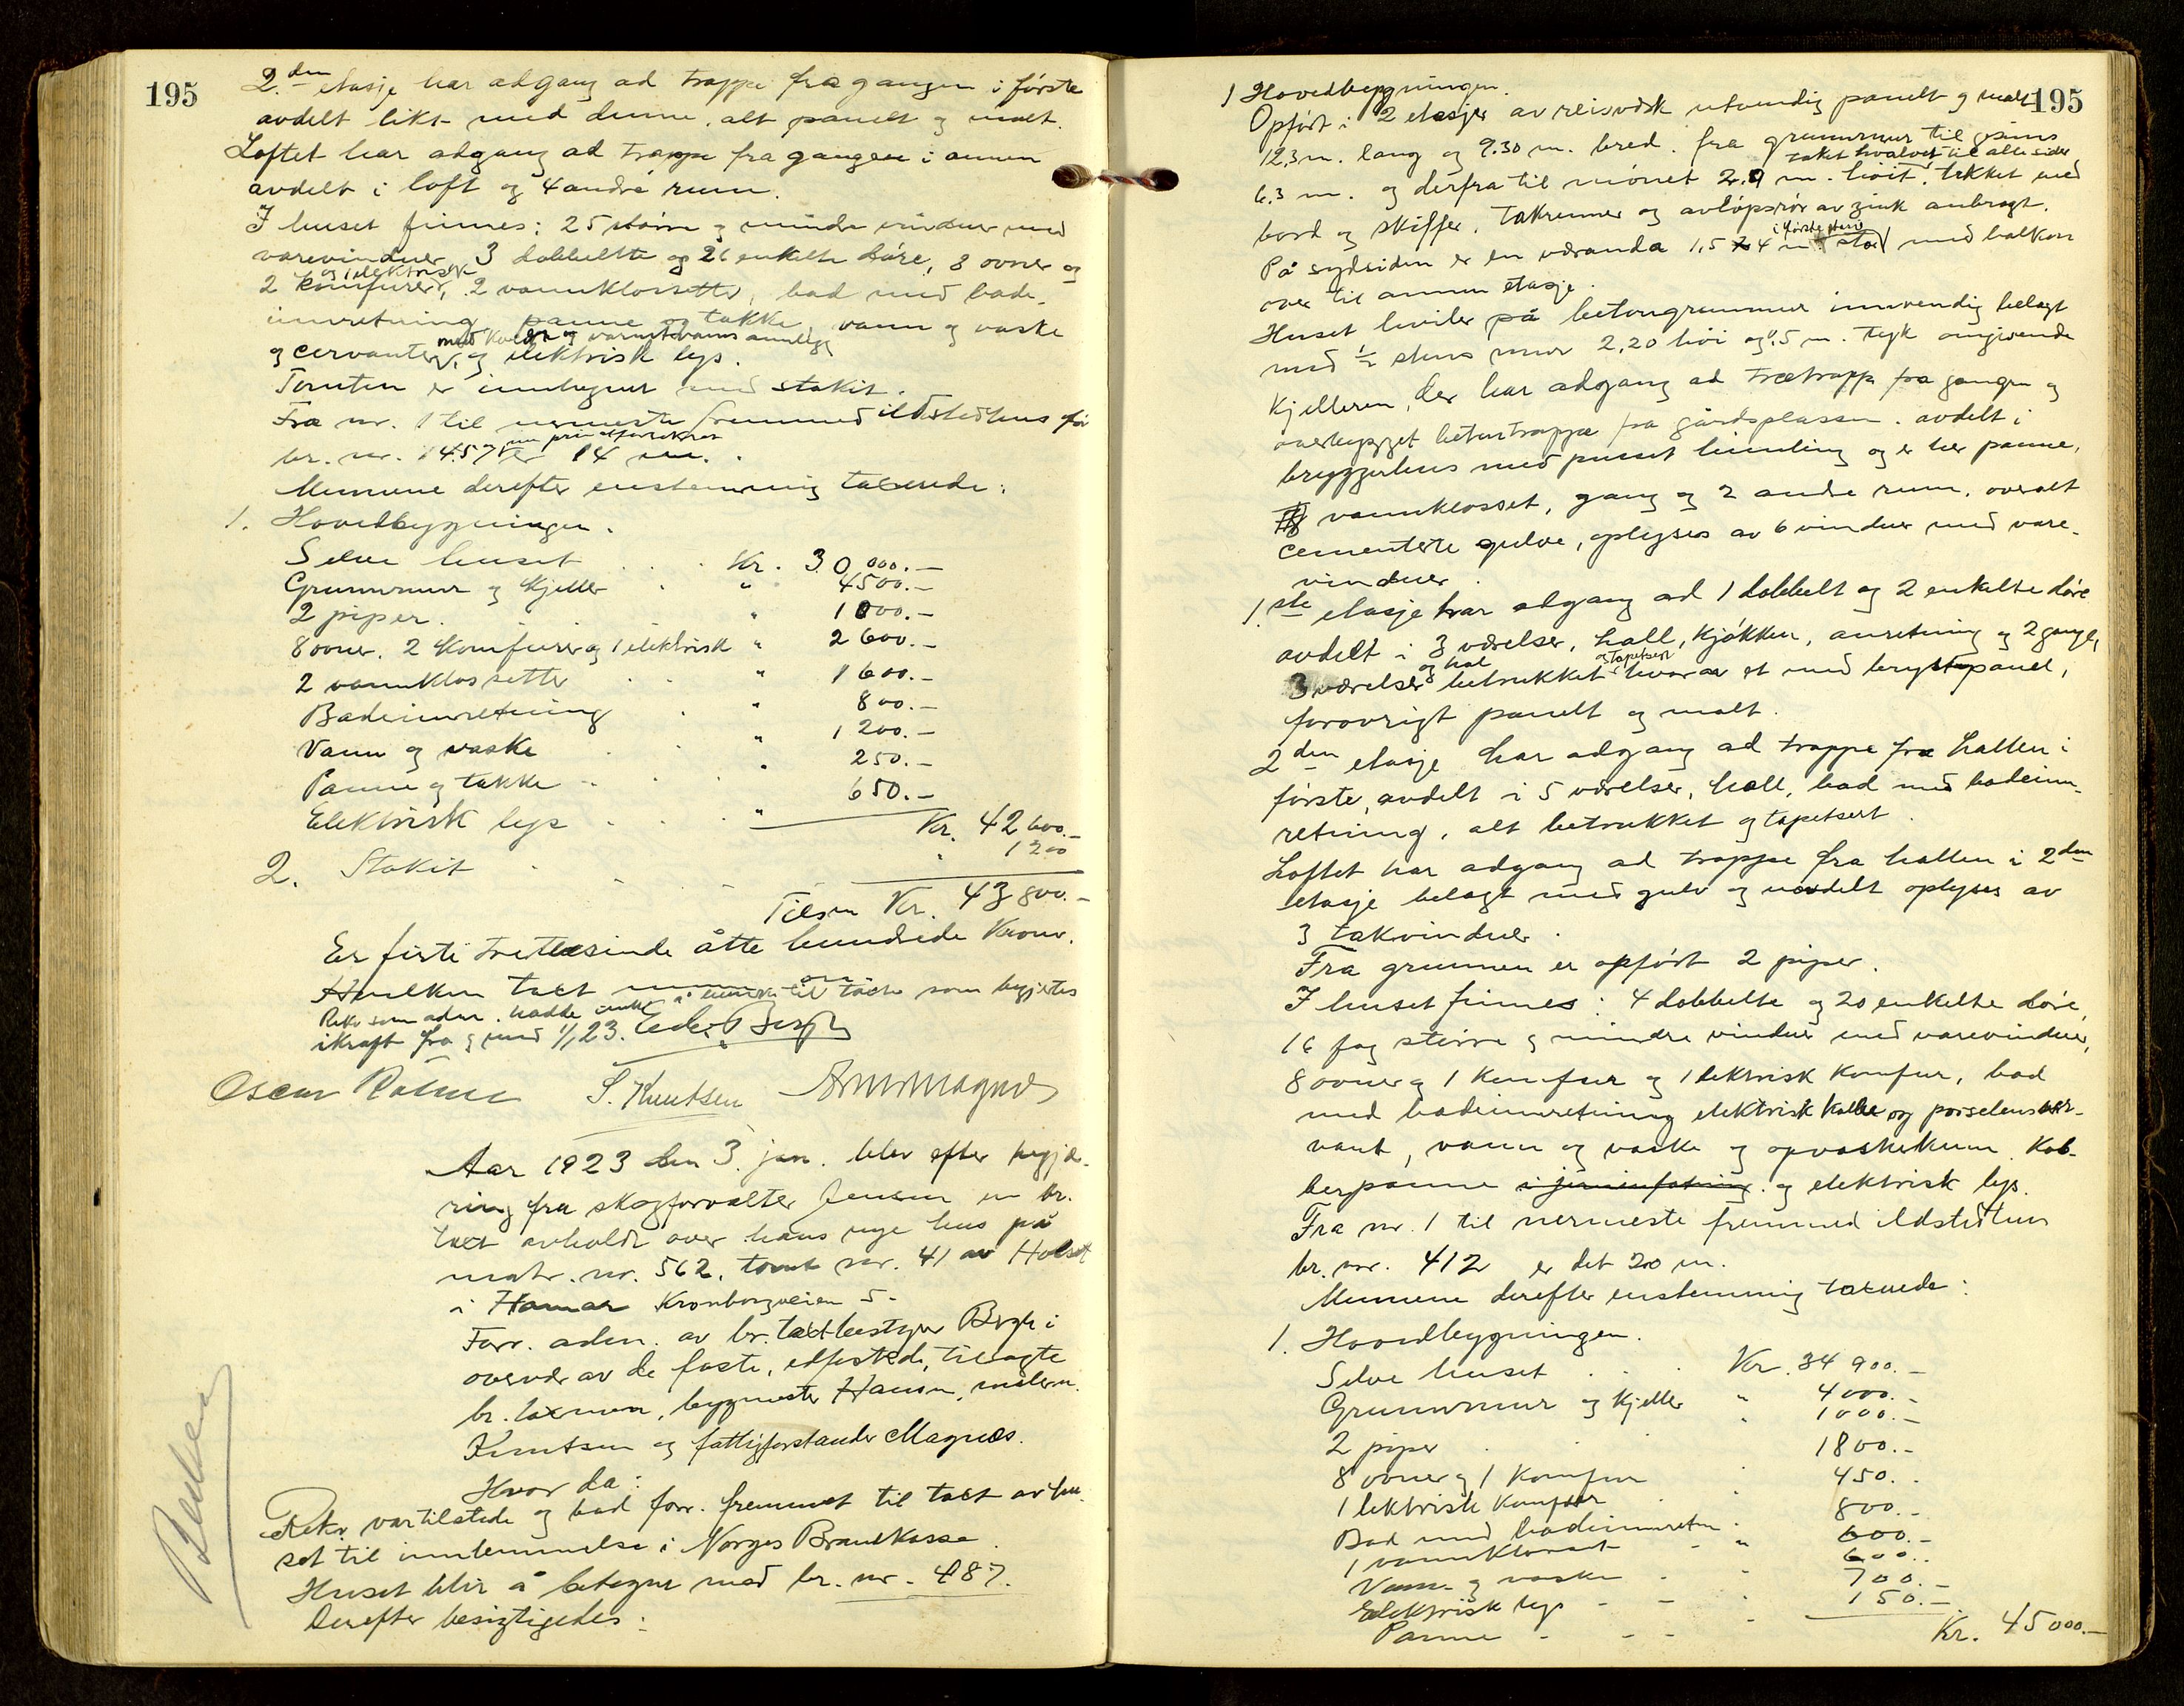 195
2.den etasje har adgang ad trappe fra gangen i første
avdelt likt med denne, alt panelt og malt.
Loftet har adgang ad trappe fra gangen i annen
avdelt i loft og 4 andre rum.
I huset finnes: 25 større og mindre vinduer med
varevinduer, 3 dobbelte og 26 enkelte døre, 8 ovner og
2 komfurer, og 1 elektrisk 2 vannklossetter, bad med bade-
innretning, panne og takke, vann og vaske
og cervanter, med kaldt og varmt vanns og elektrisk lys.
Tomten er innhegnet med stakit.
Fra nr. 1 til nermeste fremmed ildstedhus
br. nr. 1457 er 14 m.
Mennene derefter enstemmig taxerede:
1. Hovedbygningen.
Selve huset . . . Kr. 30,000.-
Grunnmur og kjeller . " 4500.-
2 piper. " 1000.-
8 ovner. 2 komfurer og 1 elektrisk " 2600.-
2 vannklossetter . . " 1600.-
Badeinnretning . " 800.-
Vann og vaske . . " 1200.-
Panne og takke . . . " 250.-
Elektrisk lys . . . " 650.-
Kr. 42600.-
2. Stakit . . . . " 1200
Tilsm Kr. 43800.-
Er førti tretusinde åtte hundrede Kroner.
Hvilken taxt som begjertes
Rekv. som adm. hadde intet å
ikraft fra og med 1/1 23.
Oscar S. Knutsen
Aar 1923 den 3. jan. blev efter begjæ-
ring fra skogforvalter Jensen en br.
taxt avholdt over hans nye hus på
matr. nr. 562, tomt nr. 41 av Holset
i Hamar Kronborgveien 5.
Forr. adm. av br. taxtbestyrer Bergh i
overvær av de faste, edfestede, tilsagte
br. taxmen, byggmester Hansen, malerm.
Knutsen og fattigforstander Magnæs.
Hvor da:
Rekv. var tilstede og bad forr. fremmet til taxt av hu-
set til innlemmelse i Norges Brandkasse.
Huset blir å betegne med br. nr. 487.
Derefter besigtigedes:
195
1 Hovedbygningen.
Opført i 2 etasjer av reisverk utvendig panelt og malt
12,3 m. lang og 9.30 m. bred. fra grunnmur til gesims
6,3 m. og derfra til mønet 2,9 m. høit, taket hvalvet til alle sider tekket med
bord og skiffer. Takrenner og avløpsrør av zink anbragt.
På sydsiden er en veranda 1,5 x 4 m. i første etasje stor med balkon
over til annen etasje.
Huset hviler på betongrunnmur innvendig belagt
med ½ stens mur 2,20 høi og 0,5 m. tyk omgivende
kjelleren, der har adgang ad trætrapp fra gangen og
overbygget betontrappe fra gårdsplassen. avdelt i
bryggerhus med pusset himling og er her panne,
vannklosset, gang og 2 andre rum. overalt
cementerte gulve, oplyses av 6 vinduer med vare-
vinduer.
1.ste etasje har adgang ad 1 dobbelt og 2 enkelte døre
avdelt i 3 værelser, hall, kjøkken, anretning og 2 gange,
3 værelser og hal betrukket og tapetsert hvorav et med brystpanel,
forøvrigt panelt og malt.
2den etasje har adgang ad trappe fra hallen i
første, avdelt i 5 værelser, hall, bad med badeinn-
retning, alt betrukket og tapetsert.
Loftet har adgang ad trappe fra hallen i 2den
etasje belagt med gulv og uavdelt oplyses av
3 takvinduer.
Fra grunnen er opført 2 piper.
I huset finnes: 4 dobbelte og 20 enkelte døre,
16 fag større og mindre vinduer med varevinduer,
8 ovner og 1 komfur og 1 lektrisk komfur, bad
med badeinnretning elektrisk kolbe og porselenscer-
vant, vann og vaske og opvaskekum. Kob-
berpanne i jerninfatning. og elektrisk lys.
Fra nr. 1 til nermeste fremmed ildstedhus
br. nr. 412 er det 20 m.
Mennene derefter enstemmig taxerede:
1. Hovedbygningen.
Selve huset . . . Kr. 34900.-
Grunnmur og kjeller " 4000.-
2 piper . . . " 1000.-
8 ovner og 1 komfur " 1800.-
1 lektrisk komfur . " 450.-
Bad med badeinnretn. " 800.-
1 vannklosset - " 600.-
Vann og vaske . " 600.-
Elektrisk lys - - " 700.-
Panne - - - " 150.-
Kr. 45000.-